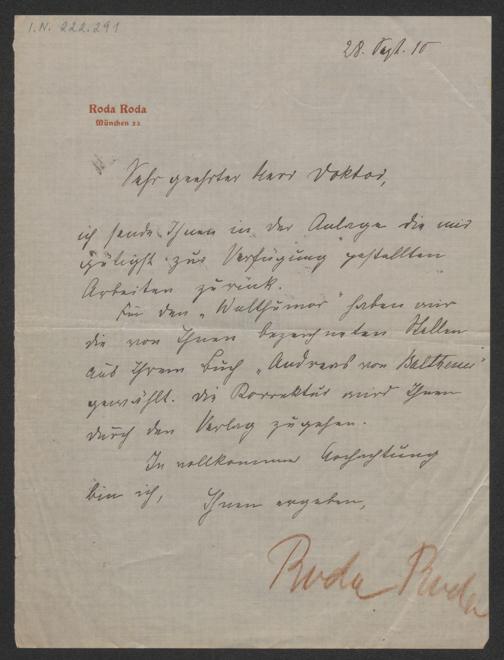 I.N. 222.291
28. Sept. 10
Roda Roda
München 23
Sehr geehrter Herr Doktor,
ich sende Ihnen in der Anlage die mir
gütigst zur Verfügung gestellten
Arbeiten zurück.
Für den „Welthumor" haben wir
die von Ihnen bezeichneten Stellen
aus Ihrem Buch „Andreas von Balthesser"
gewählt. Die Korrektur wird Ihnen
durch den Verlag zugehen.
In vollkommener Hochachtung
bin ich, Ihnen ergeben,
Roda Roda